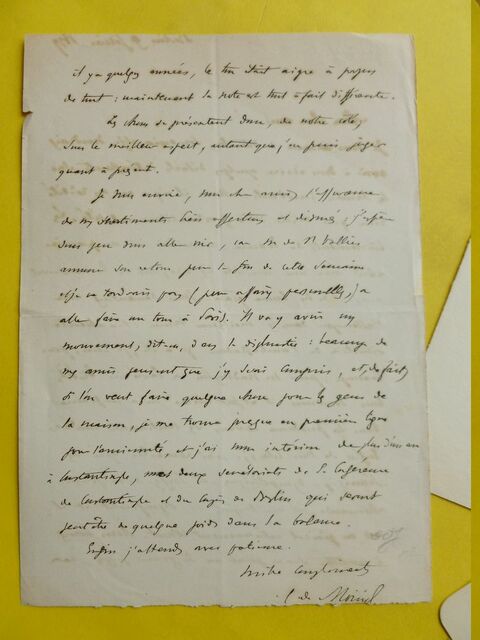 il y a quelques années, le ton était aigre à propos
de tout ; maintenant la note est tout à fait différente.
Les choses se présentent donc, de notre côté,
sous le meilleur aspect, autant que j'en puis juger
quant à présent.
Je vous envoie, mon cher ami, l'assurance
de mes sentiments bien affectueux et dévoués ; j'espère
sous peu vous aller voir, car M. de St Vallier
annonce son retour pour la fin de cette semaine
et je ne tarderais pas (pour affaires personnelles) à
aller faire un tour à Paris. Il va y avoir un
mouvement, dit-on, dans la diplomatie : beaucoup de
mes amis pensent que j'y serai compris, et, de fait,
si l'on veut faire quelque chose pour les gens de
la maison, je me trouve presque en première ligne
pour l'ancienneté, et j'ai mon intérim de plus d'un an
à Constantinople, mes deux secrétariats de la Conférence
de Constantinople et du Congrès de Berlin qui seront
peut-être de quelque poids dans la balance.
Enfin j'attends avec patience.
de Moüy